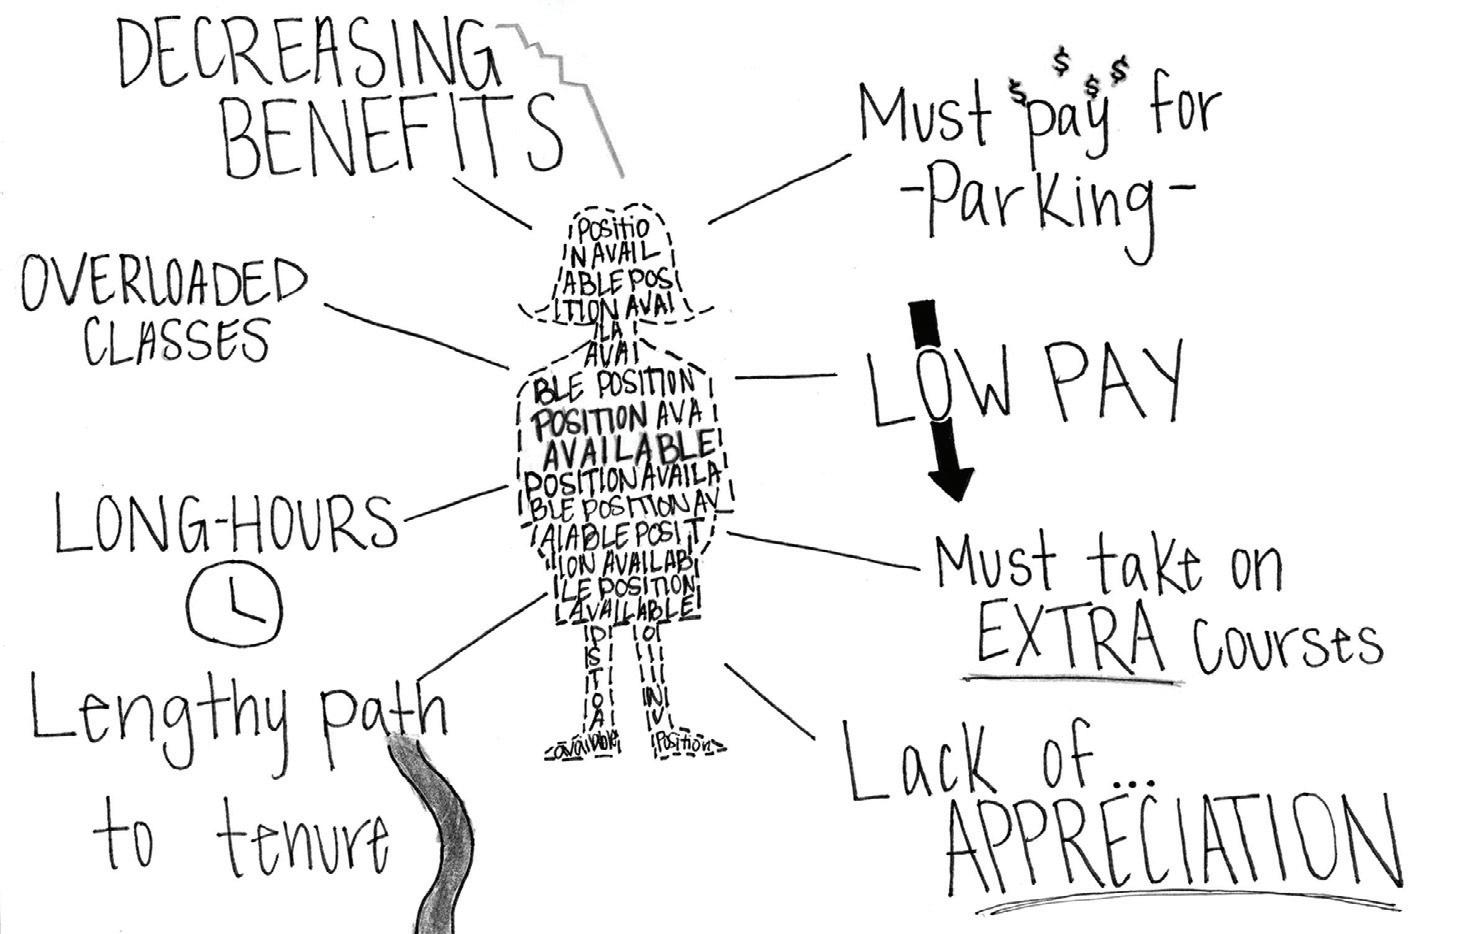 DECREASING
BENEFITS
Must pay for
-Parking-
OVERLOADED
CLASSES
LOW PAY
LONG-HOURS
Must take on
EXTRA courses
Lengthy path
to tenure
Lack of...
APPRECIATION
POSITIO
N AVAIL
ABLE POSI
ITION AVAI
LA
AVAI
BLE POSITION
POSITION AVA
AVAILABLE
POSITION AVAILA
BLE POSITION AV
AIABLE POSIT
ION AVAILAB
LE POSITION
AVAILABLE
available
Position
$
$
$
$